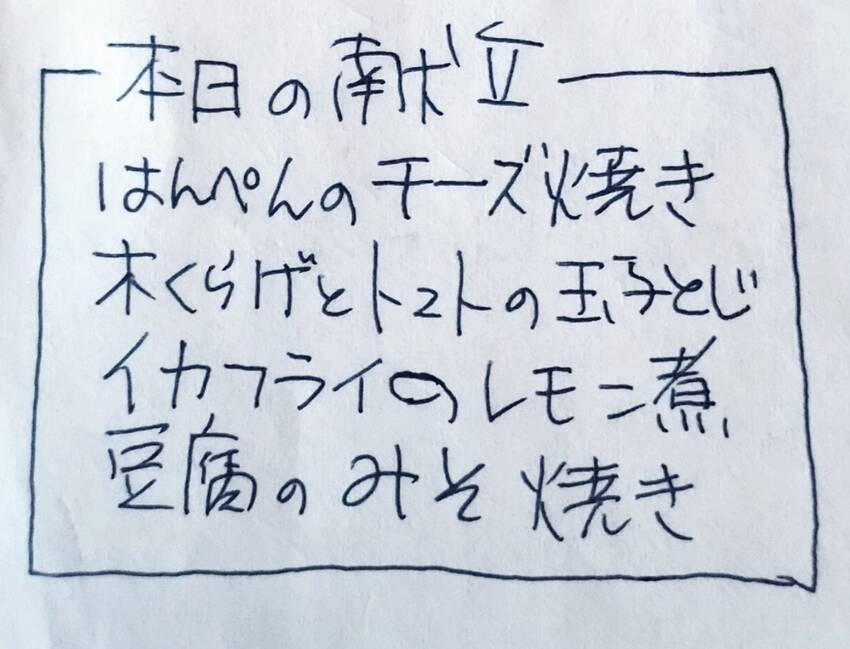 本日の献立
はんぺんのチーズ焼き
木くらげとトマトの玉子とじ
イカフライのレモン煮
豆腐のみそ焼き